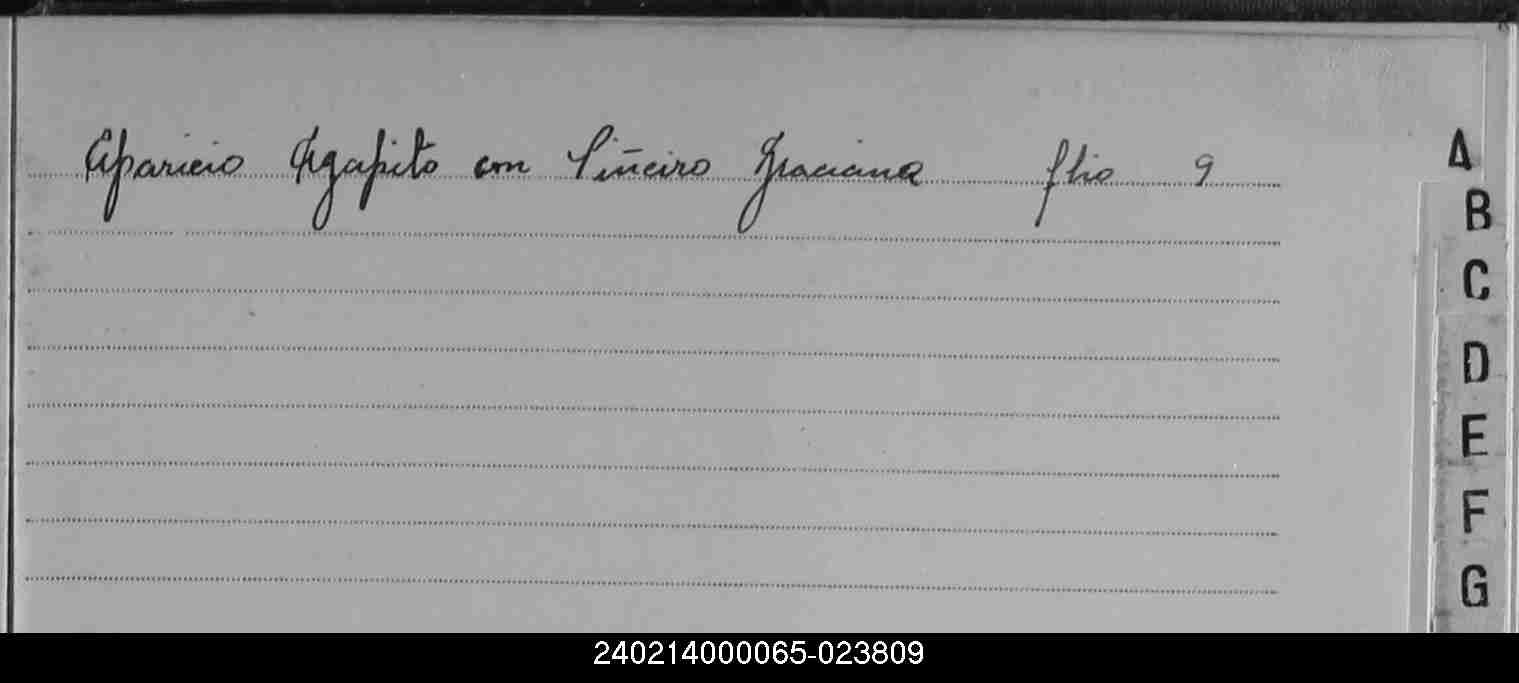 Aparicio Agapito con Piñeiro Graciana flio 9
A
B
C
D
E
F
G
240214000065-023809